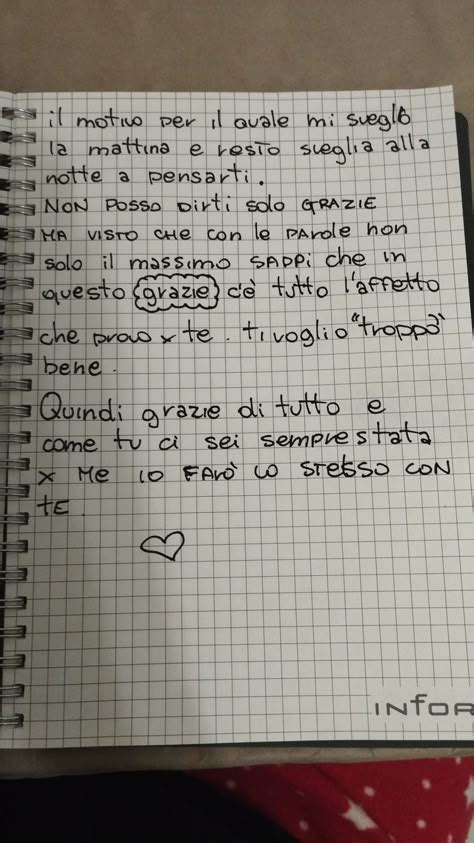 il motivo per il quale mi sveglio
la mattina e resto sveglia alla
notte a pensarti.
NON POSSO DIRTI SOLO GRAZIE
MA VISTO CHE con le PAROLE non
solo il massimo SAPPI che in
questo grazie c'è tutto l'affetto
che provo x te. ti voglio "troppo"
bene.
Quindi grazie di tutto e
come tu ci sei sempre stata
x Me IO FARÒ LO STESSO CON
TE.
INFOR